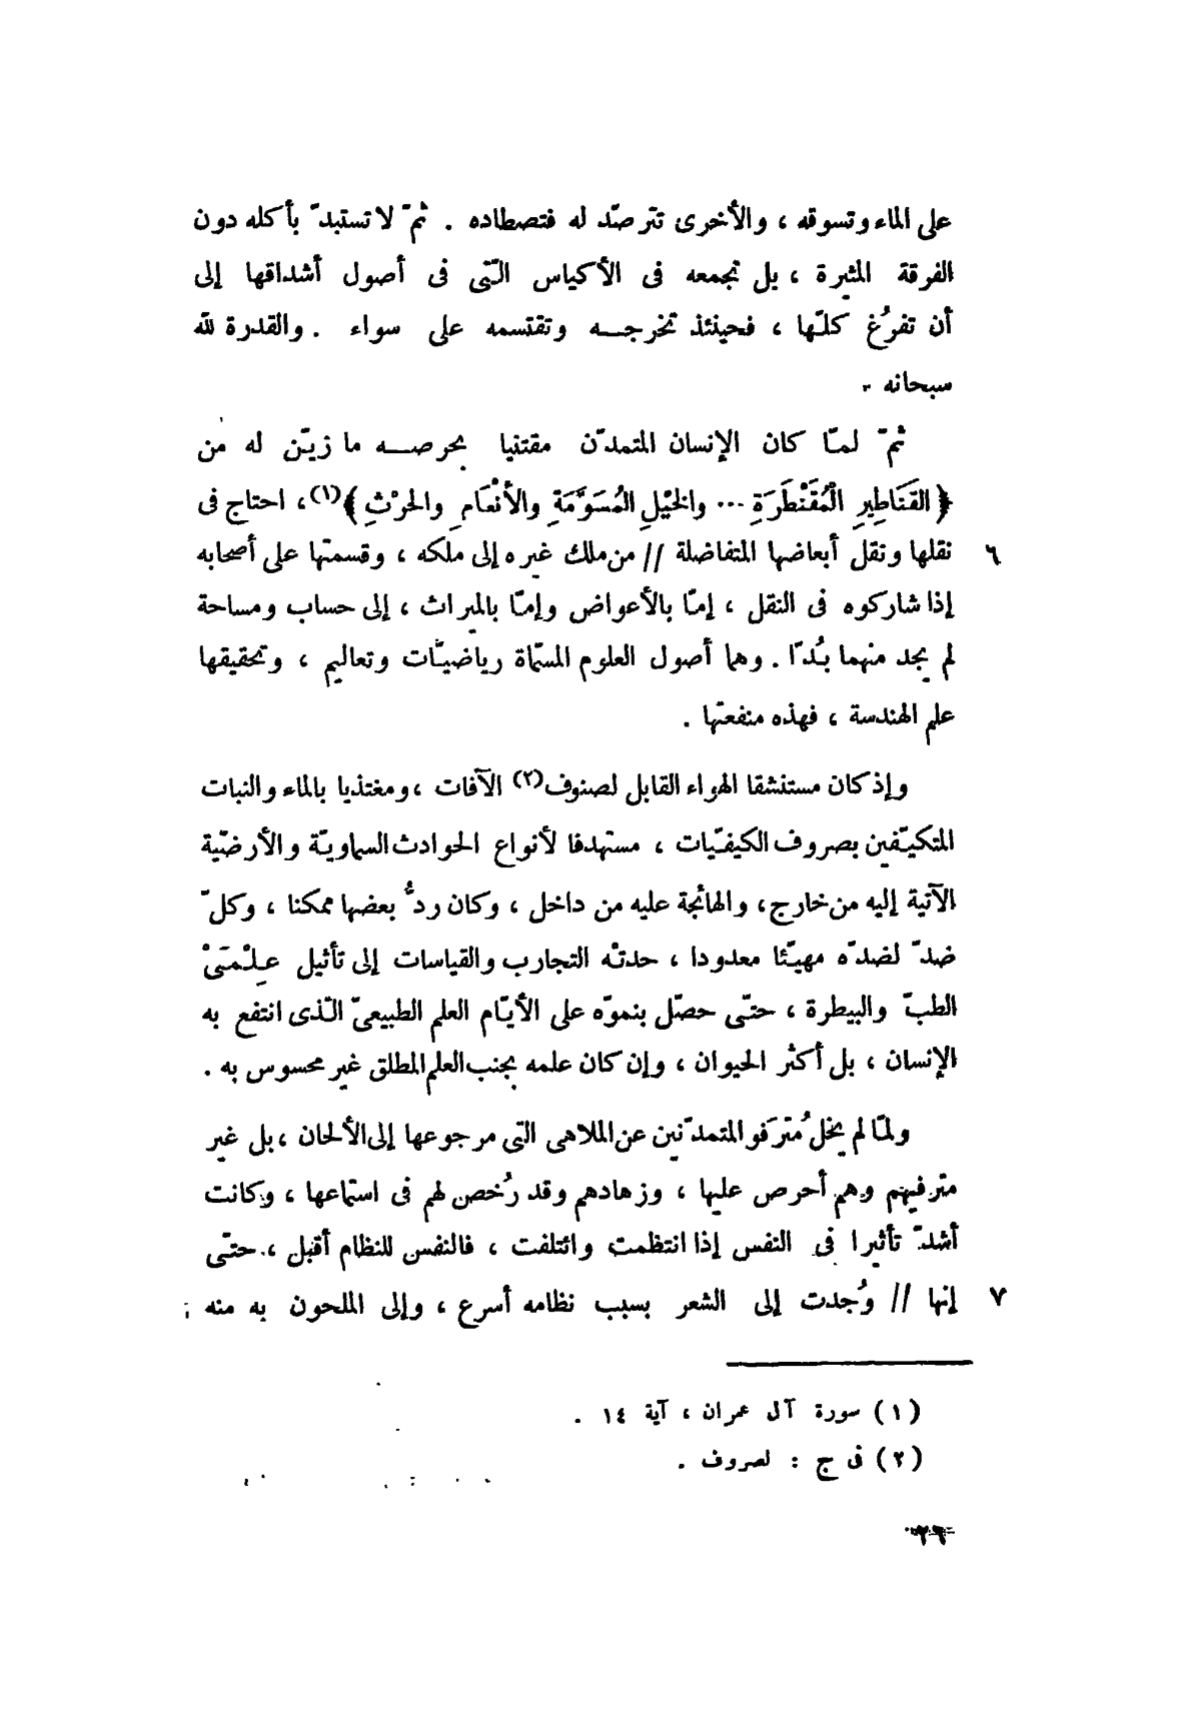 على الماء وتسوقه ، والأخرى تترصّد له فتصطاده . ثمّ لا تستبدّ بأكله دون
الفرقة المثيرة ، بل تجمعه فى الأكياس الّتى فى أصول أشداقها إلى
أن تفرُغ كلّها ، فحينئذ تخرجــه وتقتسمه على سواء . والقدرة للّه
سبحانه .
ثمّ لمّا كان الإنسان المتمدّن مقتنيا بحرصــه ما زيّن له من
﴿ القَنَاطِيرِ الْمُقَنْطَرَةِ ... والخَيْلِ المُسَوَّمَةِ والأَنْعَامِ والحَرْثِ ﴾(١) ، احتاج فى
٦ نقلها ونقل أبعاضها المتفاضلة // من ملك غيره إلى ملكه ، وقسمتها على أصحابه
إذا شاركوه فى النقل ، إمّا بالأعواض وإمّا بالميراث ، إلى حساب ومساحة
لم يجد منهما بُدّا . وهما أصول العلوم المسمّاة رياضيّات وتعاليم ، وتحقيقها
علم الهندسة ، فهذه منفعتها .
وإذ كان مستنشقا الهواء القابل لصنوف(٢) الآفات ، ومغتذيا بالماء والنبات
المتكيّفين بصروف الكيفيّات ، مستهدفا لأنواع الحوادث السماويّة والأرضيّة
الآتية إليه من خارج ، والهائجة عليه من داخل ، وكان ردُّ بعضها ممكنا ، وكلّ
ضدّ لضدّه مهيّئا معدودا ، حدتْه التجارب والقياسات إلى تأثيل عِلْمَىْ
الطبّ والبيطرة ، حتّى حصّل بنموّه على الأيّام العلم الطبيعىّ الّذى انتفع به
الإنسان ، بل أكثر الحيوان ، وإن كان علمه بجنب العلم المطلق غير محسوس به .
ولمّا لم يخل مُترَفو المتمدّنين عن الملاهى التى مرجوعها إلى الألحان ، بل غير
مترفيهم وهم أحرص عليها ، وزهادهم وقد رُخص لهم فى استماعها ، وكانت
أشدّ تأثيرا فى النفس إذا انتظمت وائتلفت ، فالنفس للنظام أقبل ، حتّى
٧ إنها // وُجدت إلى الشعر بسبب نظامه أسرع ، وإلى الملحون به منه ؛
(١) سورة آل عمران ، آية ١٤ .
(٢) فى ج : لصروف .
٢٦